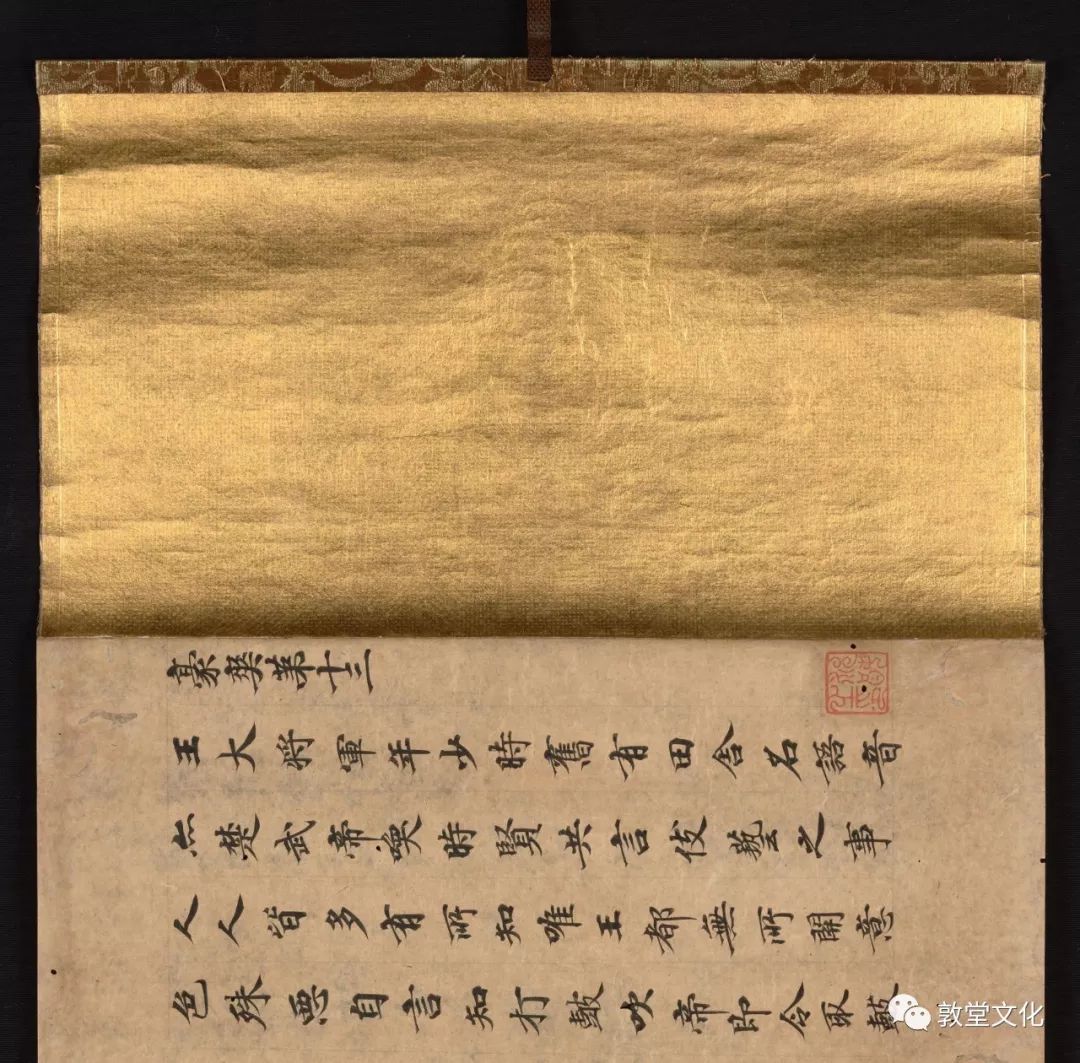 豪爽第十三
王大将軍年少時舊有田舍名語音
亦楚武帝喚時賢共言伎藝之事
人人皆多有所知唯王都無所關意
色殊悪自言知打皷吹帝即令取皷
敦堂文化